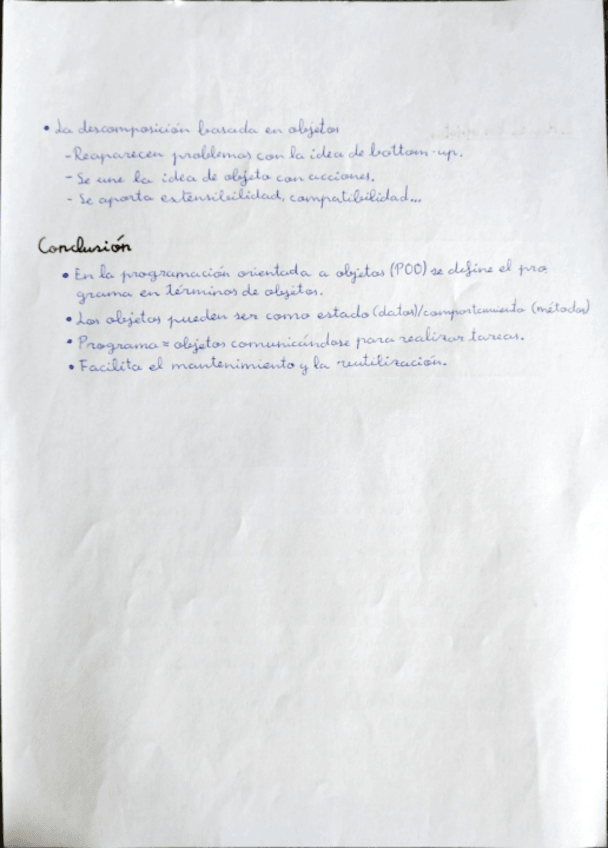 • La descomposición basada en objetos
- Reaparecen problemas con la idea de bottom-up.
- Se une la idea de objeto con acciones.
- Se aporta extensibilidad, compatibilidad...
Conclusión
• En la programación orientada a objetos (POO) se define el pro
grama en términos de objetos.
• Los objetos pueden ser como estado (datos)/comportamiento (métodos)
• Programa = objetos comunicándose para realizar tareas.
• Facilita el mantenimiento y la reutilización.